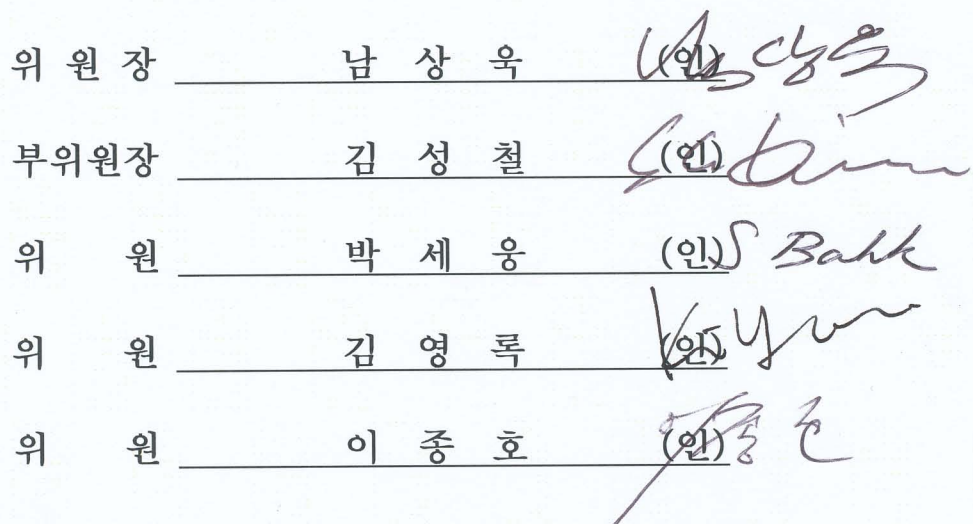 위 원 장 남 상 욱 (인) 남상욱
부위원장 김 성 철 (인)
위 원 박 세 웅 (인) S Bahk
위 원 김 영 록 (인)
위 원 이 종 호 (인)